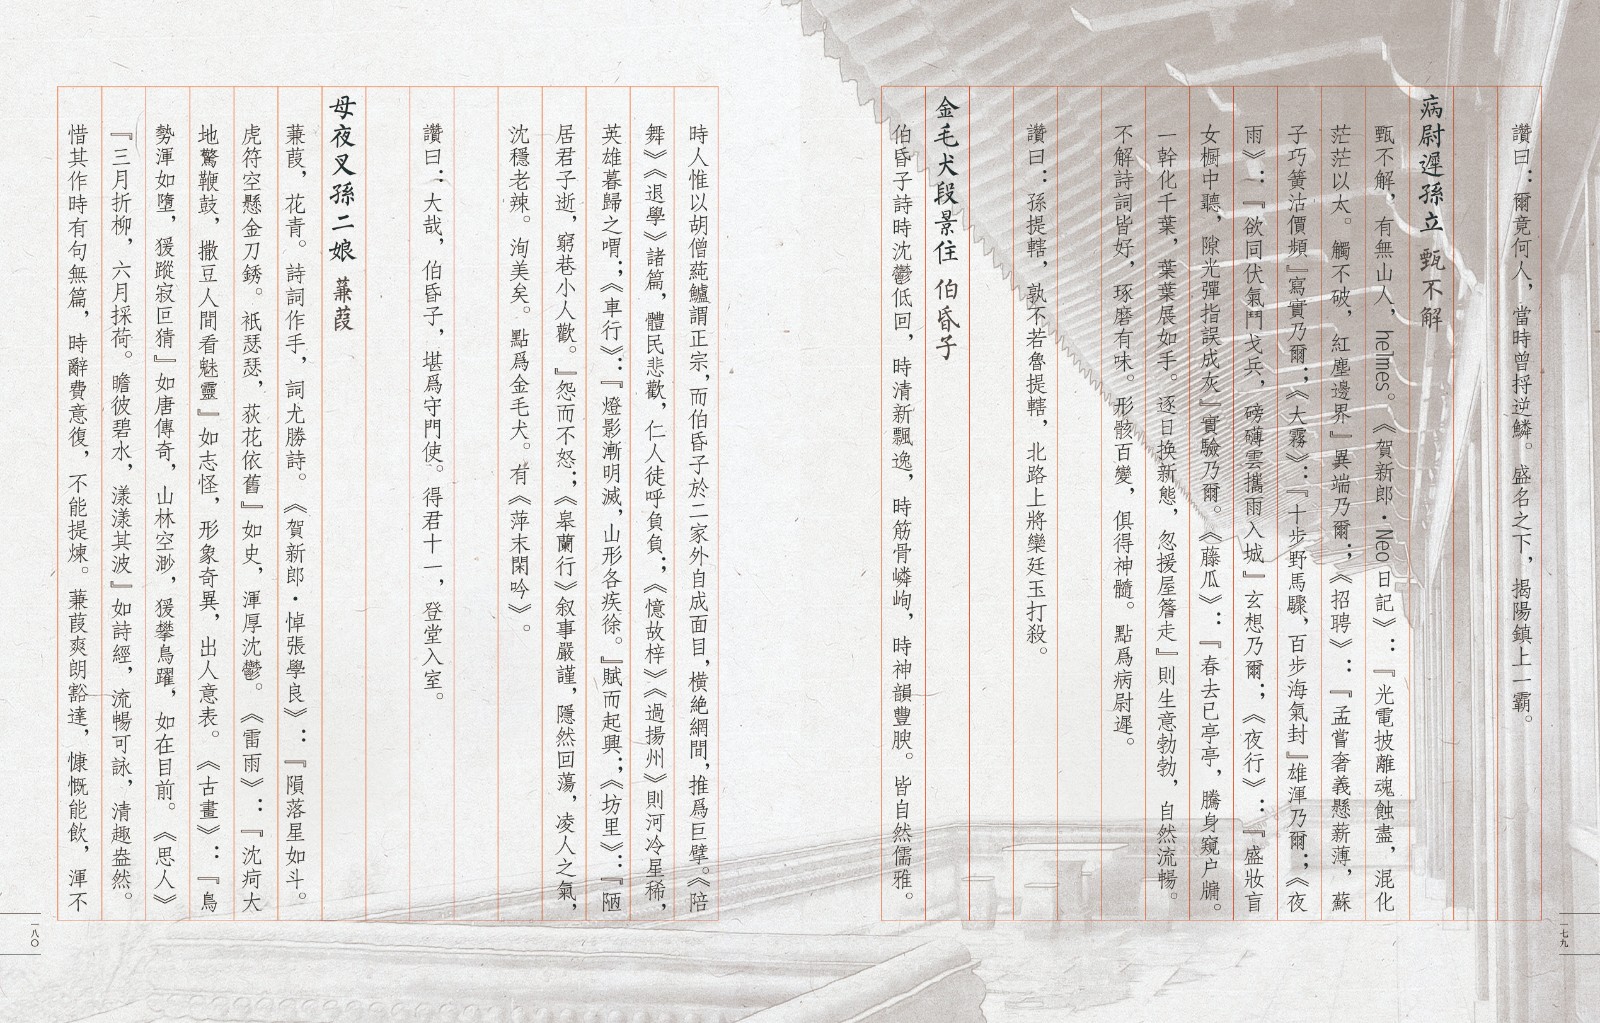 讚曰：爾竟何人，當時曾捋逆鱗。盛名之下，揭陽鎮上一霸。
病尉遲孫立 甄不解
甄不解，有無山人，helmes。《賀新郎·Neo日記》：『光電披離魂蝕盡，混化
茫茫以太。觸不破，紅塵邊界』異端乃爾；《招聘》：『孟嘗奢義懸薪薄，蘇
子巧簧沽價頻』寫實乃爾；《大霧》：『十步野馬驟，百步海氣封』雄渾乃爾；《夜
雨》：『欲同伏氣鬥戈兵，磅礴雲攜雨入城』玄想乃爾；《夜行》：『盛妝盲
女櫥中聽，隙光彈指誤成灰』實驗乃爾。《藤瓜》：『春去已亭亭，騰身窺户牖。
一幹化千葉，葉葉展如手。逐日换新態，忽援屋簷走』則生意勃勃，自然流暢。
不解詩詞皆好，琢磨有味。形骸百變，俱得神髓。點爲病尉遲。
讚曰：孫提轄，孰不若魯提轄，北路上將欒廷玉打殺。
金毛犬段景住 伯昏子
伯昏子詩時沈鬱低回，時清新飄逸，時筋骨嶙峋，時神韻豐腴。皆自然儒雅。
時人惟以胡僧蒓鱸謂正宗，而伯昏子於二家外自成面目，橫絶網間，推爲巨擘。《陪
舞》《退學》諸篇，體民悲歡，仁人徒呼負負；《憶故梓》《過揚州》則河冷星稀，
英雄暮歸之喟；《車行》：『燈影漸明滅，山形各疾徐。』賦而起興；《坊里》：『陋
居君子逝，窮巷小人歡。』怨而不怒；《皋蘭行》叙事嚴謹，隱然回蕩，凌人之氣，
沈穩老辣。洵美矣。點爲金毛犬。有《萍末閑吟》。
讚曰：大哉，伯昏子，堪爲守門使。得君十一，登堂入室。
母夜叉孫二娘 蒹葭
蒹葭，花青。詩詞作手，詞尤勝詩。《賀新郎·悼張學良》：『隕落星如斗。
虎符空懸金刀銹。衹瑟瑟，荻花依舊』如史，渾厚沈鬱。《雷雨》：『沈疴大
地驚鞭鼓，撒豆人間看魅靈』如志怪，形象奇異，出人意表。《古畫》：『鳥
勢渾如墮，猨蹤寂叵猜』如唐傳奇，山林空渺，猨攀鳥躍，如在目前。《思人》
『三月折柳，六月採荷。瞻彼碧水，漾漾其波』如詩經，流暢可詠，清趣盎然。
惜其作時有句無篇，時辭費意復，不能提煉。蒹葭爽朗豁達，慷慨能飲，渾不
一七九
一八〇